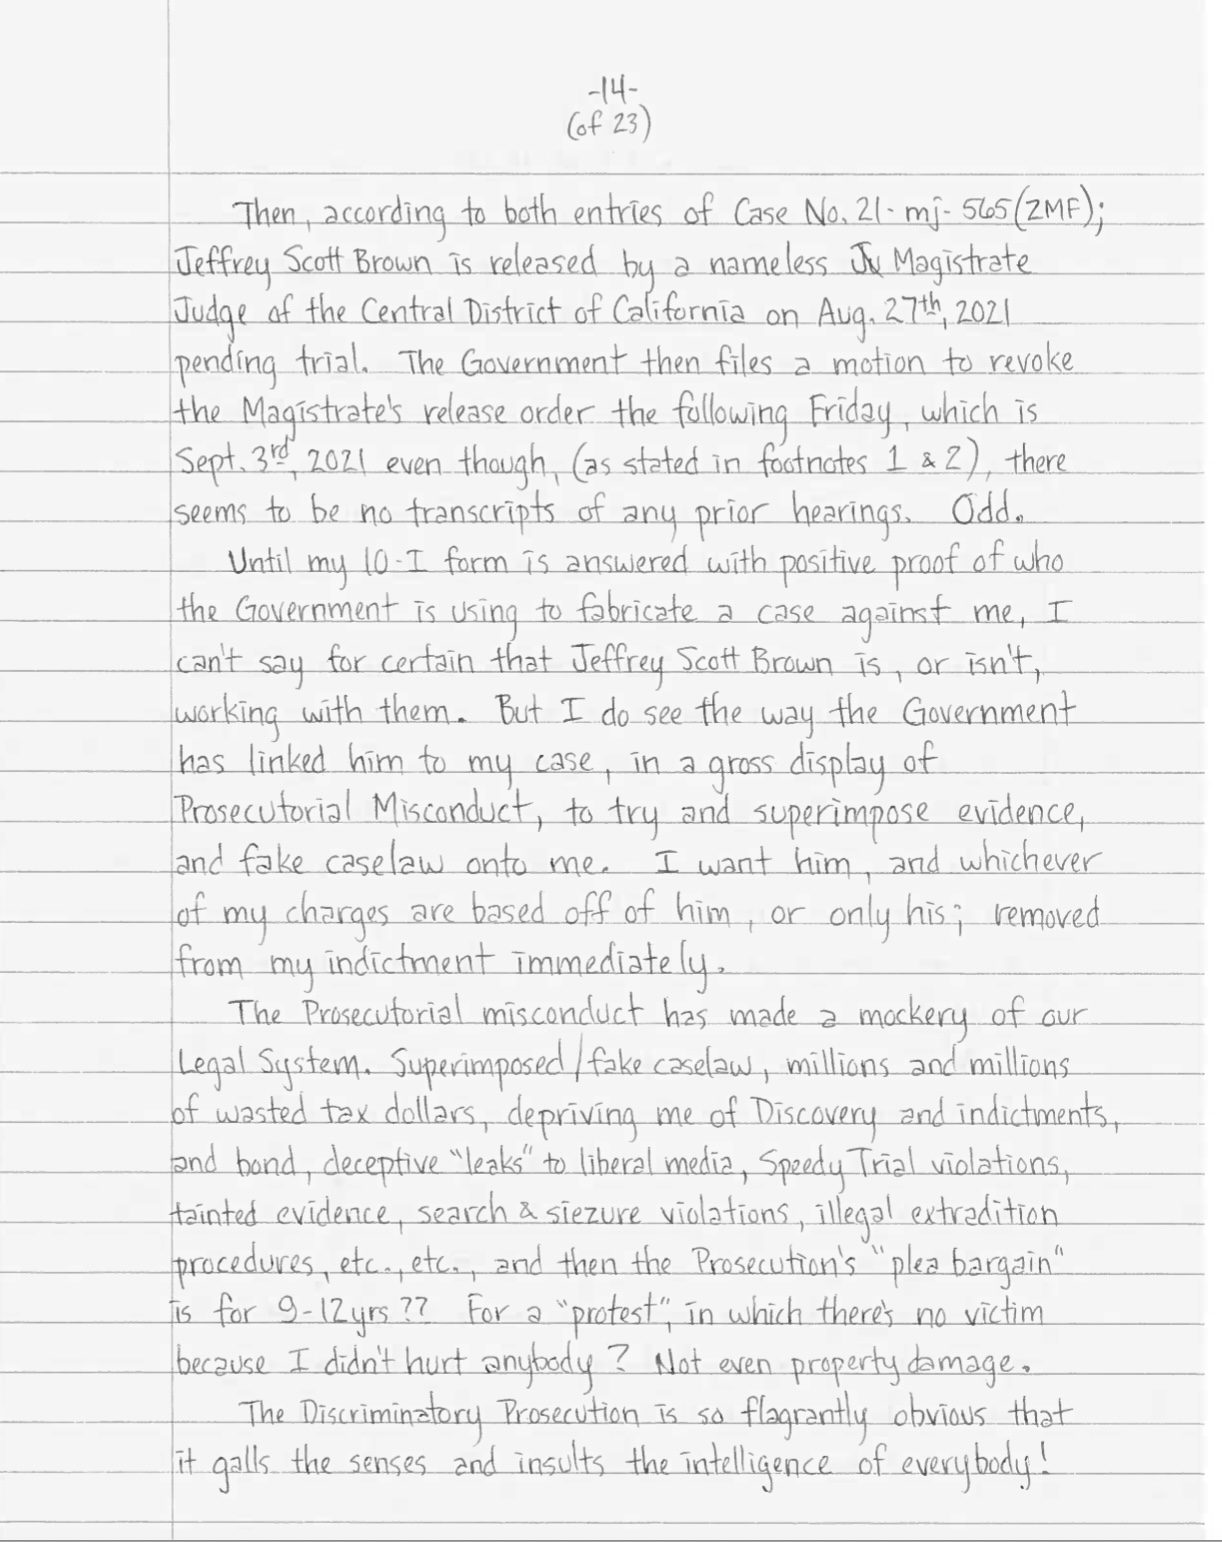 -14-
(of 23)
Then, according to both entries of Case No. 21-mj-565(ZMF);
Jeffrey Scott Brown is released by a nameless Magistrate
Judge of the Central District of California on Aug. 27th, 2021
pending trial. The Government then files a motion to revoke
the Magistrate's release order the following Friday, which is
Sept. 3rd, 2021 even though, (as stated in footnotes 1 & 2), there
seems to be no transcripts of any prior hearings. Odd.
Until my 10-I form is answered with positive proof of who
the Government is using to fabricate a case against me, I
can't say for certain that Jeffrey Scott Brown is, or isn't,
working with them. But I do see the way the Government
has linked him to my case, in a gross display of
Prosecutorial Misconduct, to try and superimpose evidence,
and fake caselaw onto me. I want him, and whichever
of my charges are based off of him, or only his; removed
from my indictment immediately.
The Prosecutorial misconduct has made a mockery of our
Legal System. Superimposed/fake caselaw, millions and millions
of wasted tax dollars, depriving me of Discovery and indictments,
and bond, deceptive "leaks" to liberal media, Speedy Trial violations,
tainted evidence, search & siezure violations, illegal extradition
procedures, etc., etc., and then the Prosecution's "plea bargain"
is for 9-12yrs?? For a "protest", in which there's no victim
because I didn't hurt anybody? Not even property damage.
The Discriminatory Prosecution is so flagrantly obvious that
it galls the senses and insults the intelligence of everybody!